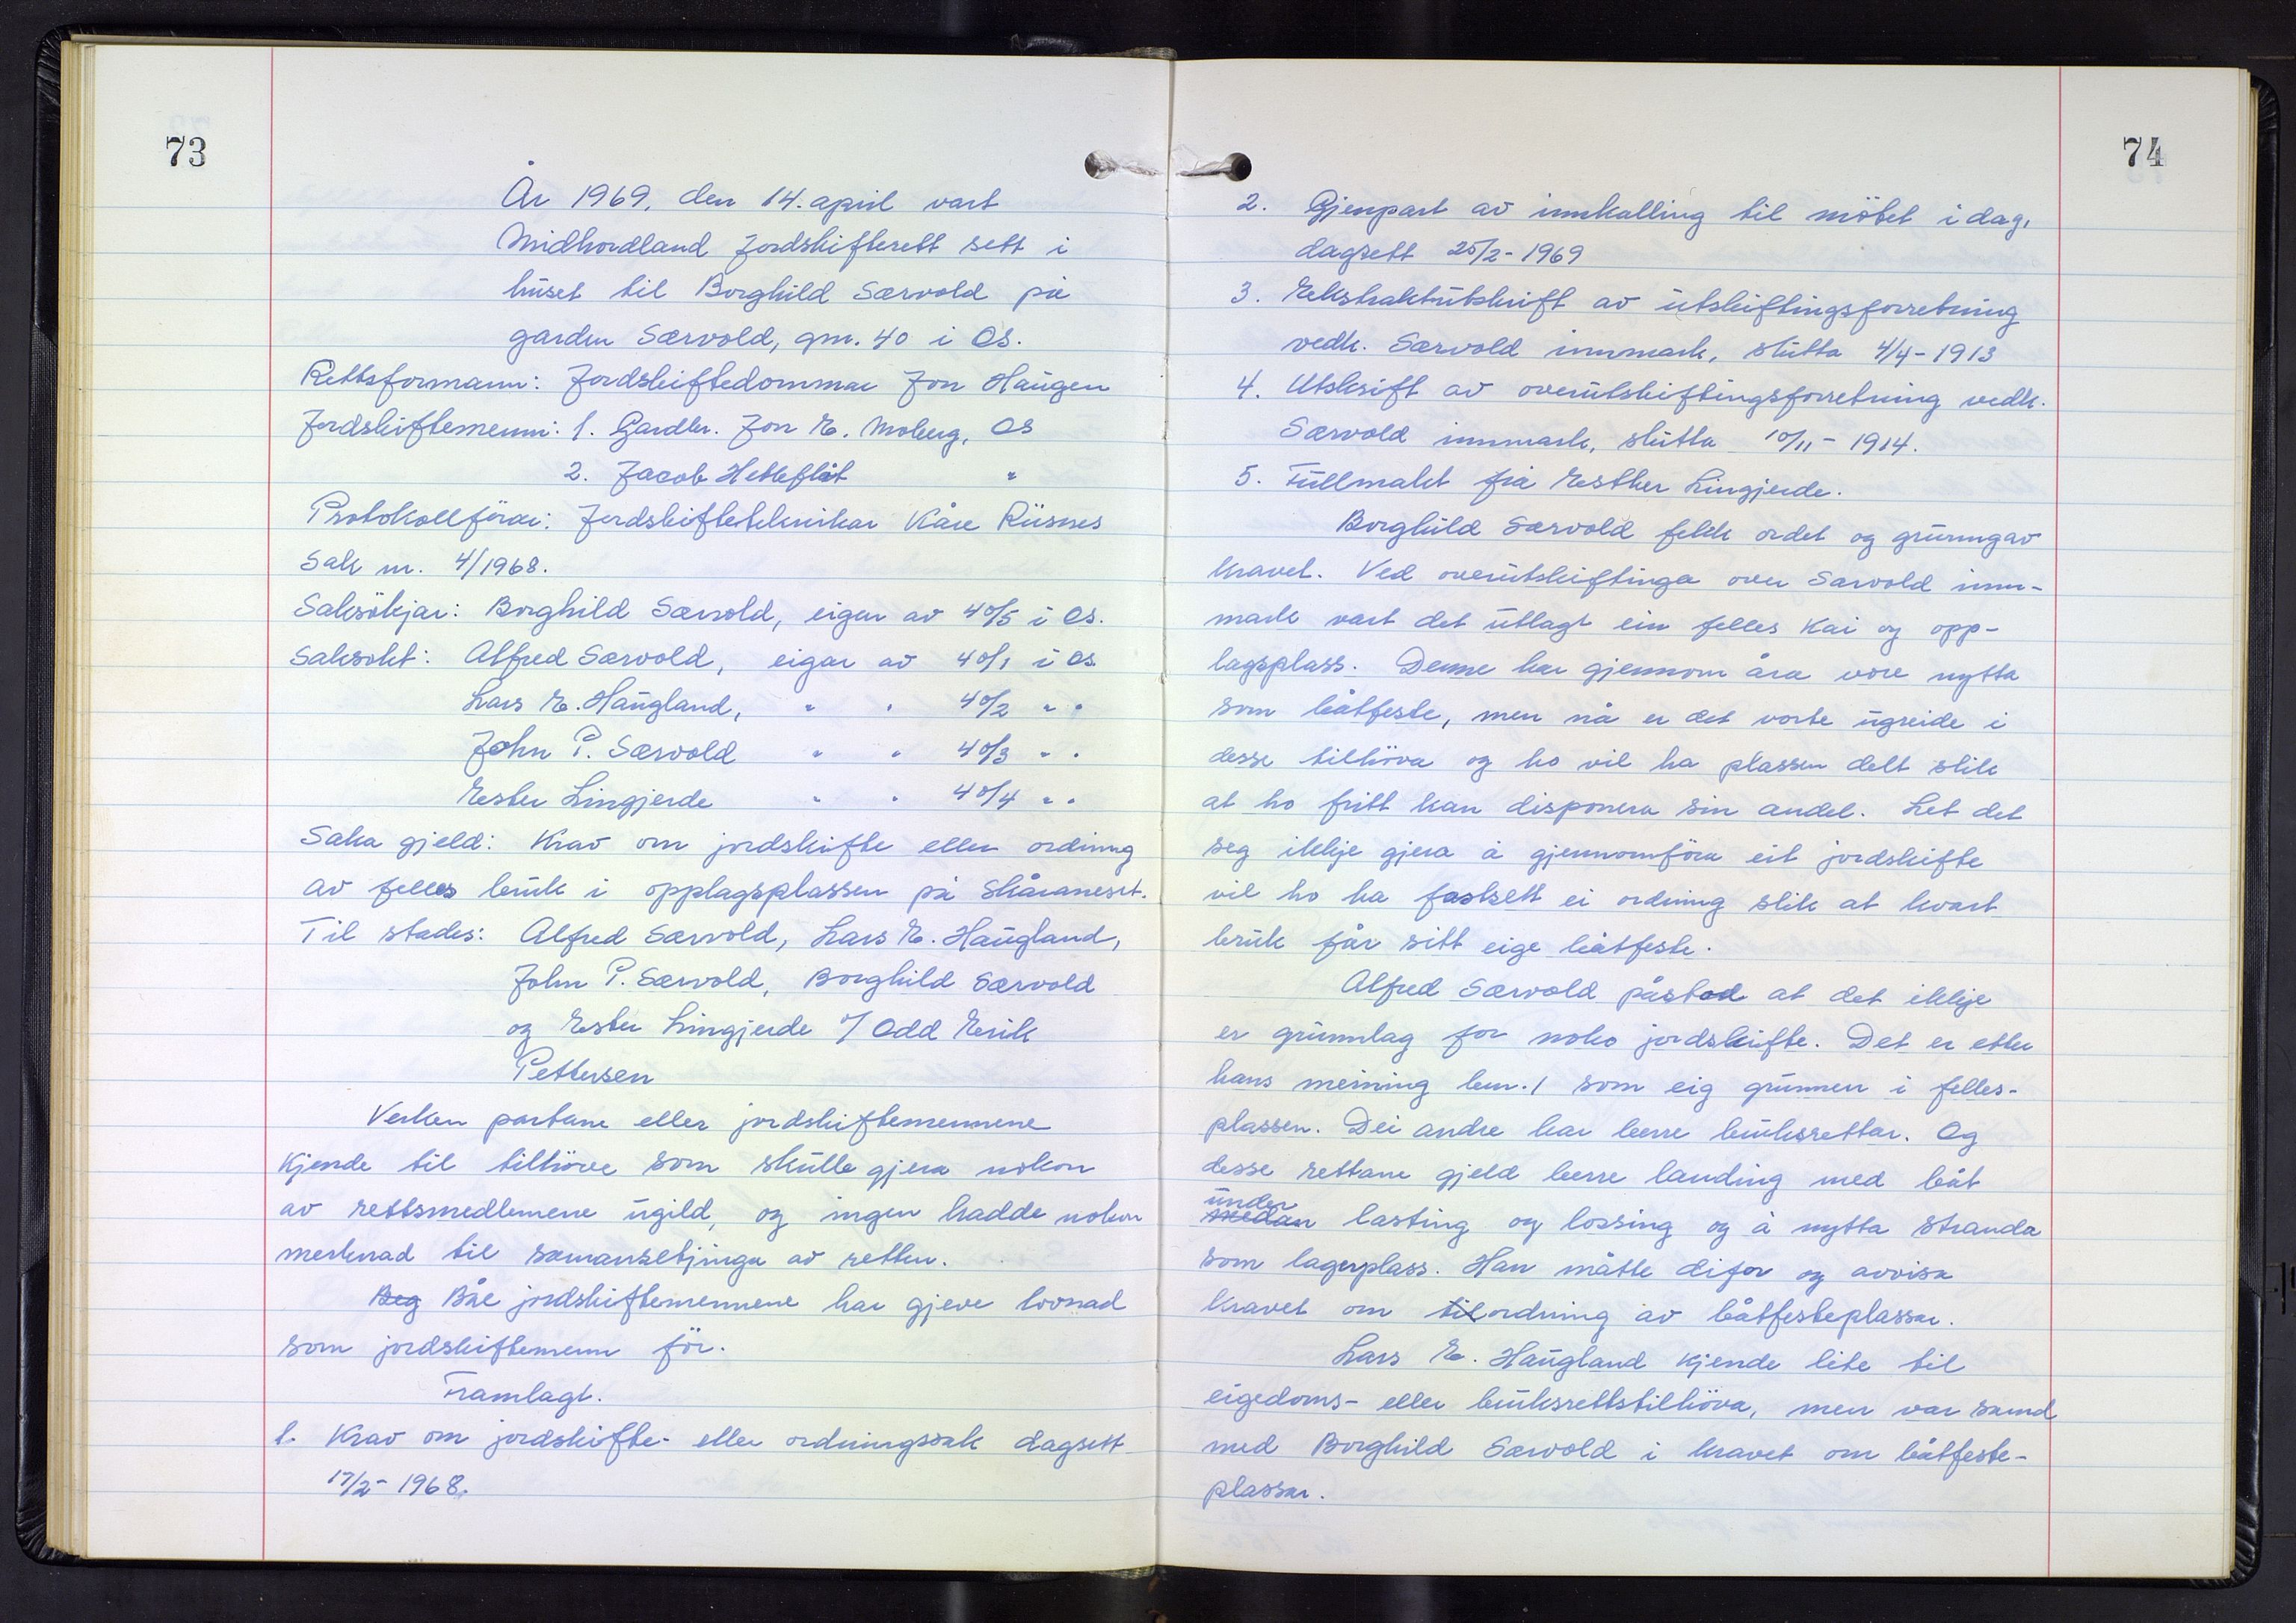 73
År 1969, den 14. april vart
Midhordland Jordskifterett sett i
huset til Borghild Særvold på
garden Særvold, gnr. 40 i Os.
Rettsformann: Jordskiftedommar Jon Haugen
Jordskiftemenn: 1. Gardbr. Jon E. Moberg, Os
2. Jacob Hetleflåt "
Protokollförar: Jordskifteteknikar Kåre Riisnes
Sak nr. 4/1968.
Saksökjar: Borghild Særvold, eigar av 40/5 i Os.
Saksökt: Alfred Særvold, eigar av 40/1 i Os
Lars E. Haugland, " " 40/2 " "
John P. Særvold " " 40/3 " "
Ester Lingjerde " " 40/4 " "
Saka gjeld: Krav om jordskifte eller ordning
av felles bruk i opplagsplassen på Skåraneset.
Til stades: Alfred Særvold, Lars E. Haugland,
John P. Særvold, Borghild Særvold
og Ester Lingjerde v/ Odd Erik
Pettersen
Verken partane eller jordskiftemennene
kjende til tilhöve som skulle gjera nokon
av rettsmedlemene ugild, og ingen hadde nokon
merknad til samansetjinga av retten.
Beg Båe jordskiftemennene har gjeve lovnad
som jordskiftemenn för.
Framlagt.
1. Krav om jordskifte- eller ordningssak dagsett
17/2- 1968.
74
2. Gjenpart av innkalling til mötet i dag,
dagsett 25/2- 1969
3. Ekstraktutskrift av utskiftingsforretning
vedk. Særvold innmark, slutta 4/4- 1913
4. Utskrift av overutskiftingsforretning vedk.
Særvold innmark, slutta 10/11- 1914.
5. Fullmakt frå Esther Lingjerde.
Borghild Særvold fekk ordet og grunngav
kravet. Ved overutskiftinga over Særvold inn-
mark vart det utlagt ein felles kai og opp-
lagsplass. Denne har gjennom åra vore nytta
som båtfeste, men nå er det vorte ugreide i
desse tilhöva og ho vil ha plassen delt slik
at ho fritt kan disponera sin andel. Let det
seg ikkje gjera å gjennomföra eit jordskifte
vil ho ha fastsett ei ordning slik at kvart
bruk får sitt eige båtfeste.
Alfred Særvold påstod at det ikkje
er grunnlag for noko jordskifte. Det er etter
hans meining bnr. 1 som eig grunnen i felles-
plassen. Dei andre har berre bruksrettar. Og
desse rettane gjeld berre landing med båt
under
medan lasting og lossing og å nytta stranda
som lagerplass. Han måtte difor og avvisa
kravet om til ordning av båtfesteplassar.
Lars E. Haugland kjende lite til
eigedoms- eller bruksrettstilhöva, men var samd
med Borghild Særvold i kravet om båtfeste-
plassar.